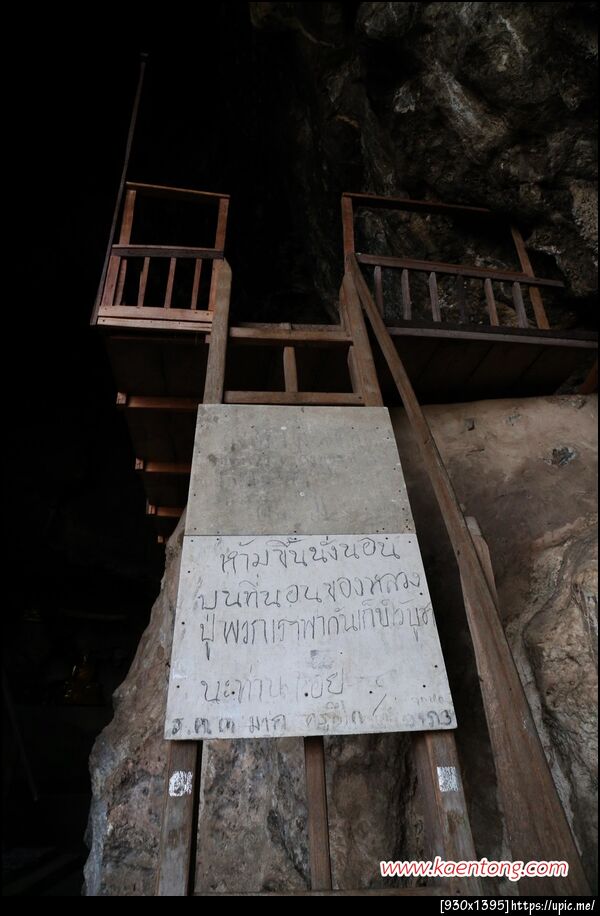 ห้ามขึ้นนั่งนอน
บนที่นอนของหลวง
ปู่ พวกเราพากันเก็บไว้บูช
นะท่าน
www.kaentong.com
[930x1395]https://upic.me/